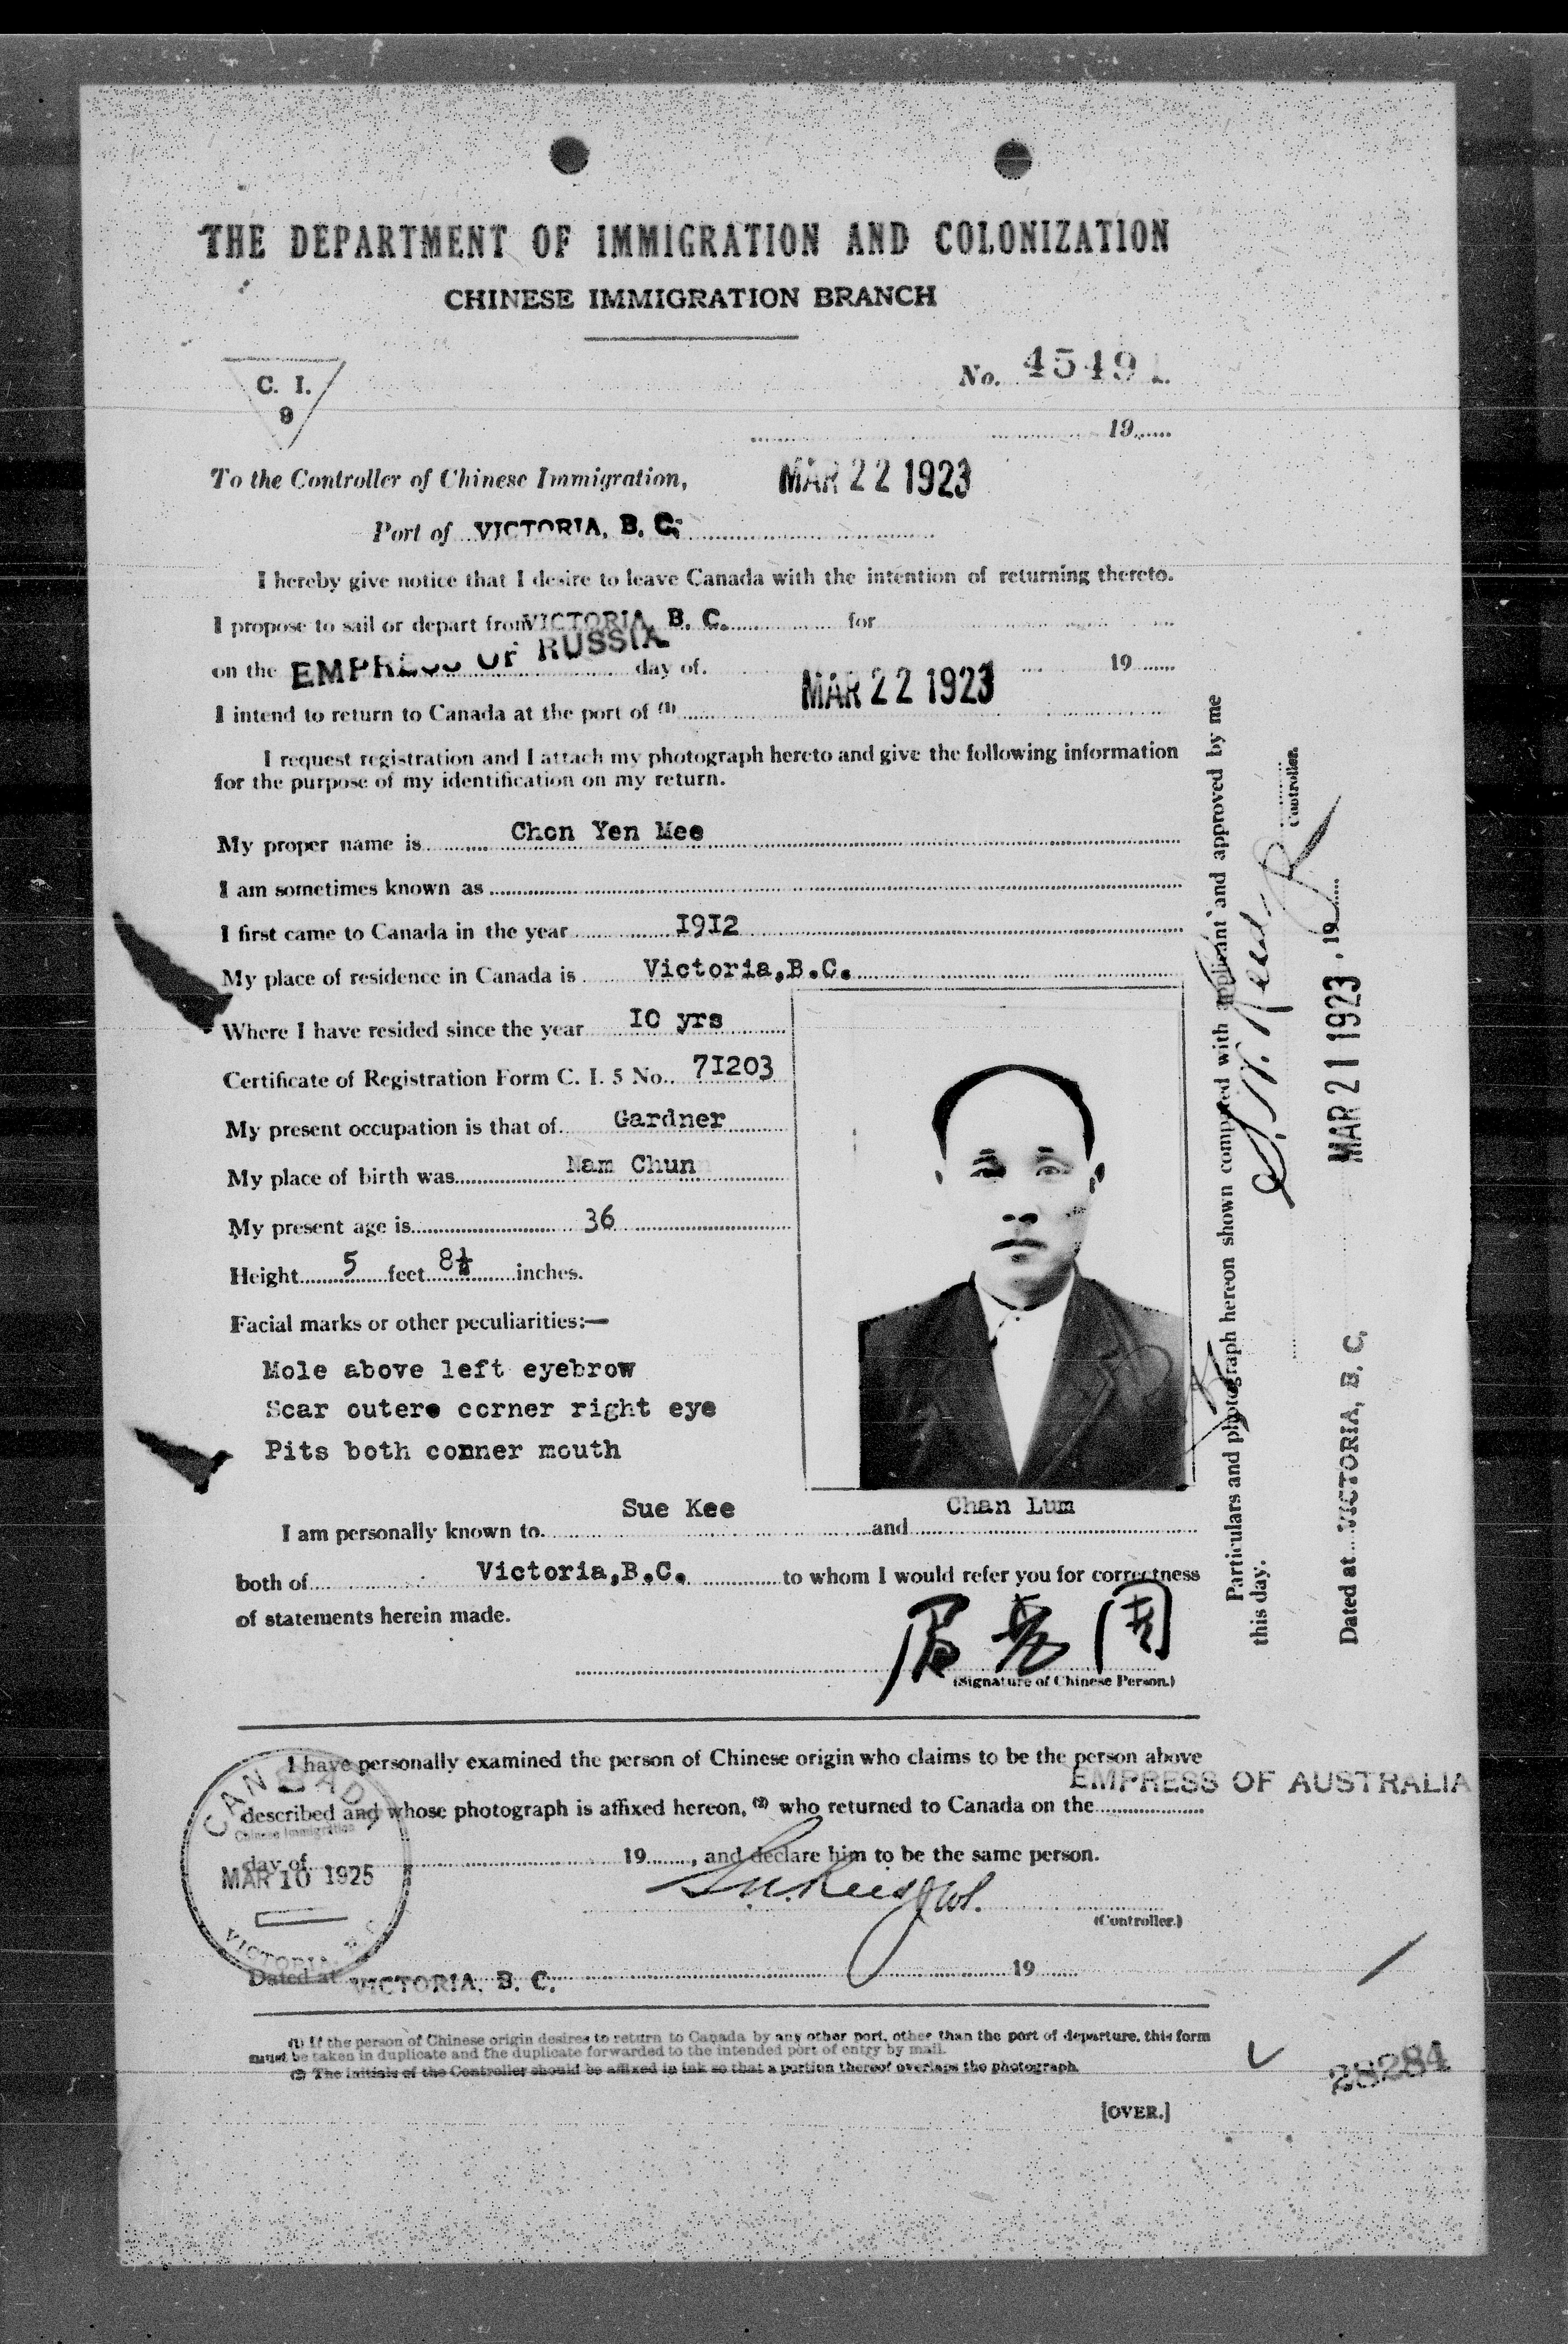 THE DEPARTMENT OF IMMIGRATION AND COLONIZATION
CHINESE IMMIGRATION BRANCH
C. I.
9
No. 45491
19
To the Controller of Chinese Immigration,
MAR 22 1923
Port of VICTORIA, B. C.
I hereby give notice that I desire to leave Canada with the intention of returning thereto.
I propose to sail or depart from VICTORIA, B. C. for
on the EMPRESS OF RUSSIA day of 19
MAR 22 1923
I intend to return to Canada at the port of (1)
I request registration and I attach my photograph hereto and give the following information
for the purpose of my identification on my return.
My proper name is Chon Yen Mee
I am sometimes known as
I first came to Canada in the year 1912
My place of residence in Canada is Victoria,B.C.
Where I have resided since the year 10 yrs
Certificate of Registration Form C. I. 5 No. 71203
My present occupation is that of Gardner
My place of birth was Nam Chun
My present age is 36
Height 5 feet 8½ inches.
Facial marks or other peculiarities:—
Mole above left eyebrow
Scar outere corner right eye
Pits both conner mouth
I am personally known to Sue Kee and Chan Lum
both of Victoria,B.C. to whom I would refer you for correctness
of statements herein made.
(Signature of Chinese Person.)
Particulars and photograph hereon shown compared with applicant and approved by me
this day.
Controller.
Dated at VICTORIA, B. C. MAR 21 1923 19
I have personally examined the person of Chinese origin who claims to be the person above
EMPRESS OF AUSTRALIA
described and whose photograph is affixed hereon, (2) who returned to Canada on the
day of 19, and declare him to be the same person.
CANADA
Chinese Immigration
MAR 10 1925
VICTORIA, B. C.
(Controller.)
Dated at VICTORIA. B. C. 19
(1) If the person of Chinese origin desires to return to Canada by any other port, other than the port of departure, this form
must be taken in duplicate and the duplicate forwarded to the intended port of entry by mail.
(2) The initials of the Controller should be affixed in ink so that a portion thereof overlaps the photograph.
28284
[OVER.]